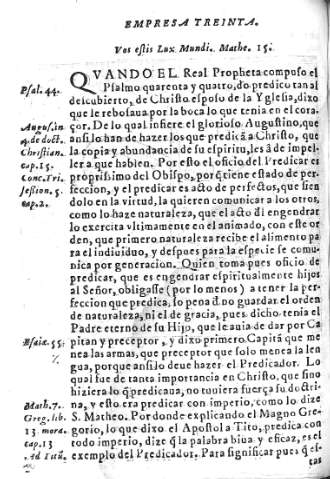 EMPRESA TREINTA.
Vos estis Lux Mundi. Mathe. 15.
QVANDO EL Real Propheta compuso el
Psal. 44. Psalmo quarenta y quatro, do predico tan al
descubierto, de Christo esposo de la Yglesia, dixo
que le rebosaua por la boca lo que tenia en el cora-
August. in çor. De lo qual infiere el glorioso Augustino, que
4. de doct. ansi lo han de hazer los que predicã a Christo, que
Christian. la copia y abundancia de su espiritu, les â de impel-
cap. 15. ler a que hablen. Por esto el oficio del Predicar es
Conc. Tri. propriissimo del Obispo, porq̃ tiene estado de per-
session. 5. feccion, y el predicar es acto de perfectos, que sien
cap. 2. dolo en la virtud, la quieren comunicar a los otros,
como lo haze naturaleza, que el acto dl engendrar
lo exercita vltimamente en el animado, con este or
den, que primero naturaleza recibe el alimento pa
ra el indiuiduo, y despues para la especie se comu-
nica por generacion. Quien toma pues oficio de
predicar, que es engendrar espiritualmente hijos
al Señor, obligasse (por lo menos) a tener la per-
feccion que predica, so pena d̃ no guardar el orden
de naturaleza, ni el de gracia, pues dicho tenia el
Padre eterno de su Hijo, que le auia de dar por Ca
Isaiæ. 55. pitan y preceptor, y dixo primero Capitã que me
nea las armas, que preceptor que solo menea la len
gua, porque ansi lo deue hazer el Predicador. Lo
qual fue de tanta importancia en Christo, que sino
hiziera lo q̃ predicaua, no tuuiera fuerça su doctri-
Math. 7. na, y esto era predicar con imperio, como lo dize
Greg. lib. S. Matheo. Por donde explicando el Magno Gre
13. mora. gorio, lo que dixo el Apostol a Tito, predica con
cap. 13 todo imperio, dize q̃ la palabra biua y eficaz, es el
Ad Titũ. exemplo del Predicador. Para significar pues q̃ es-